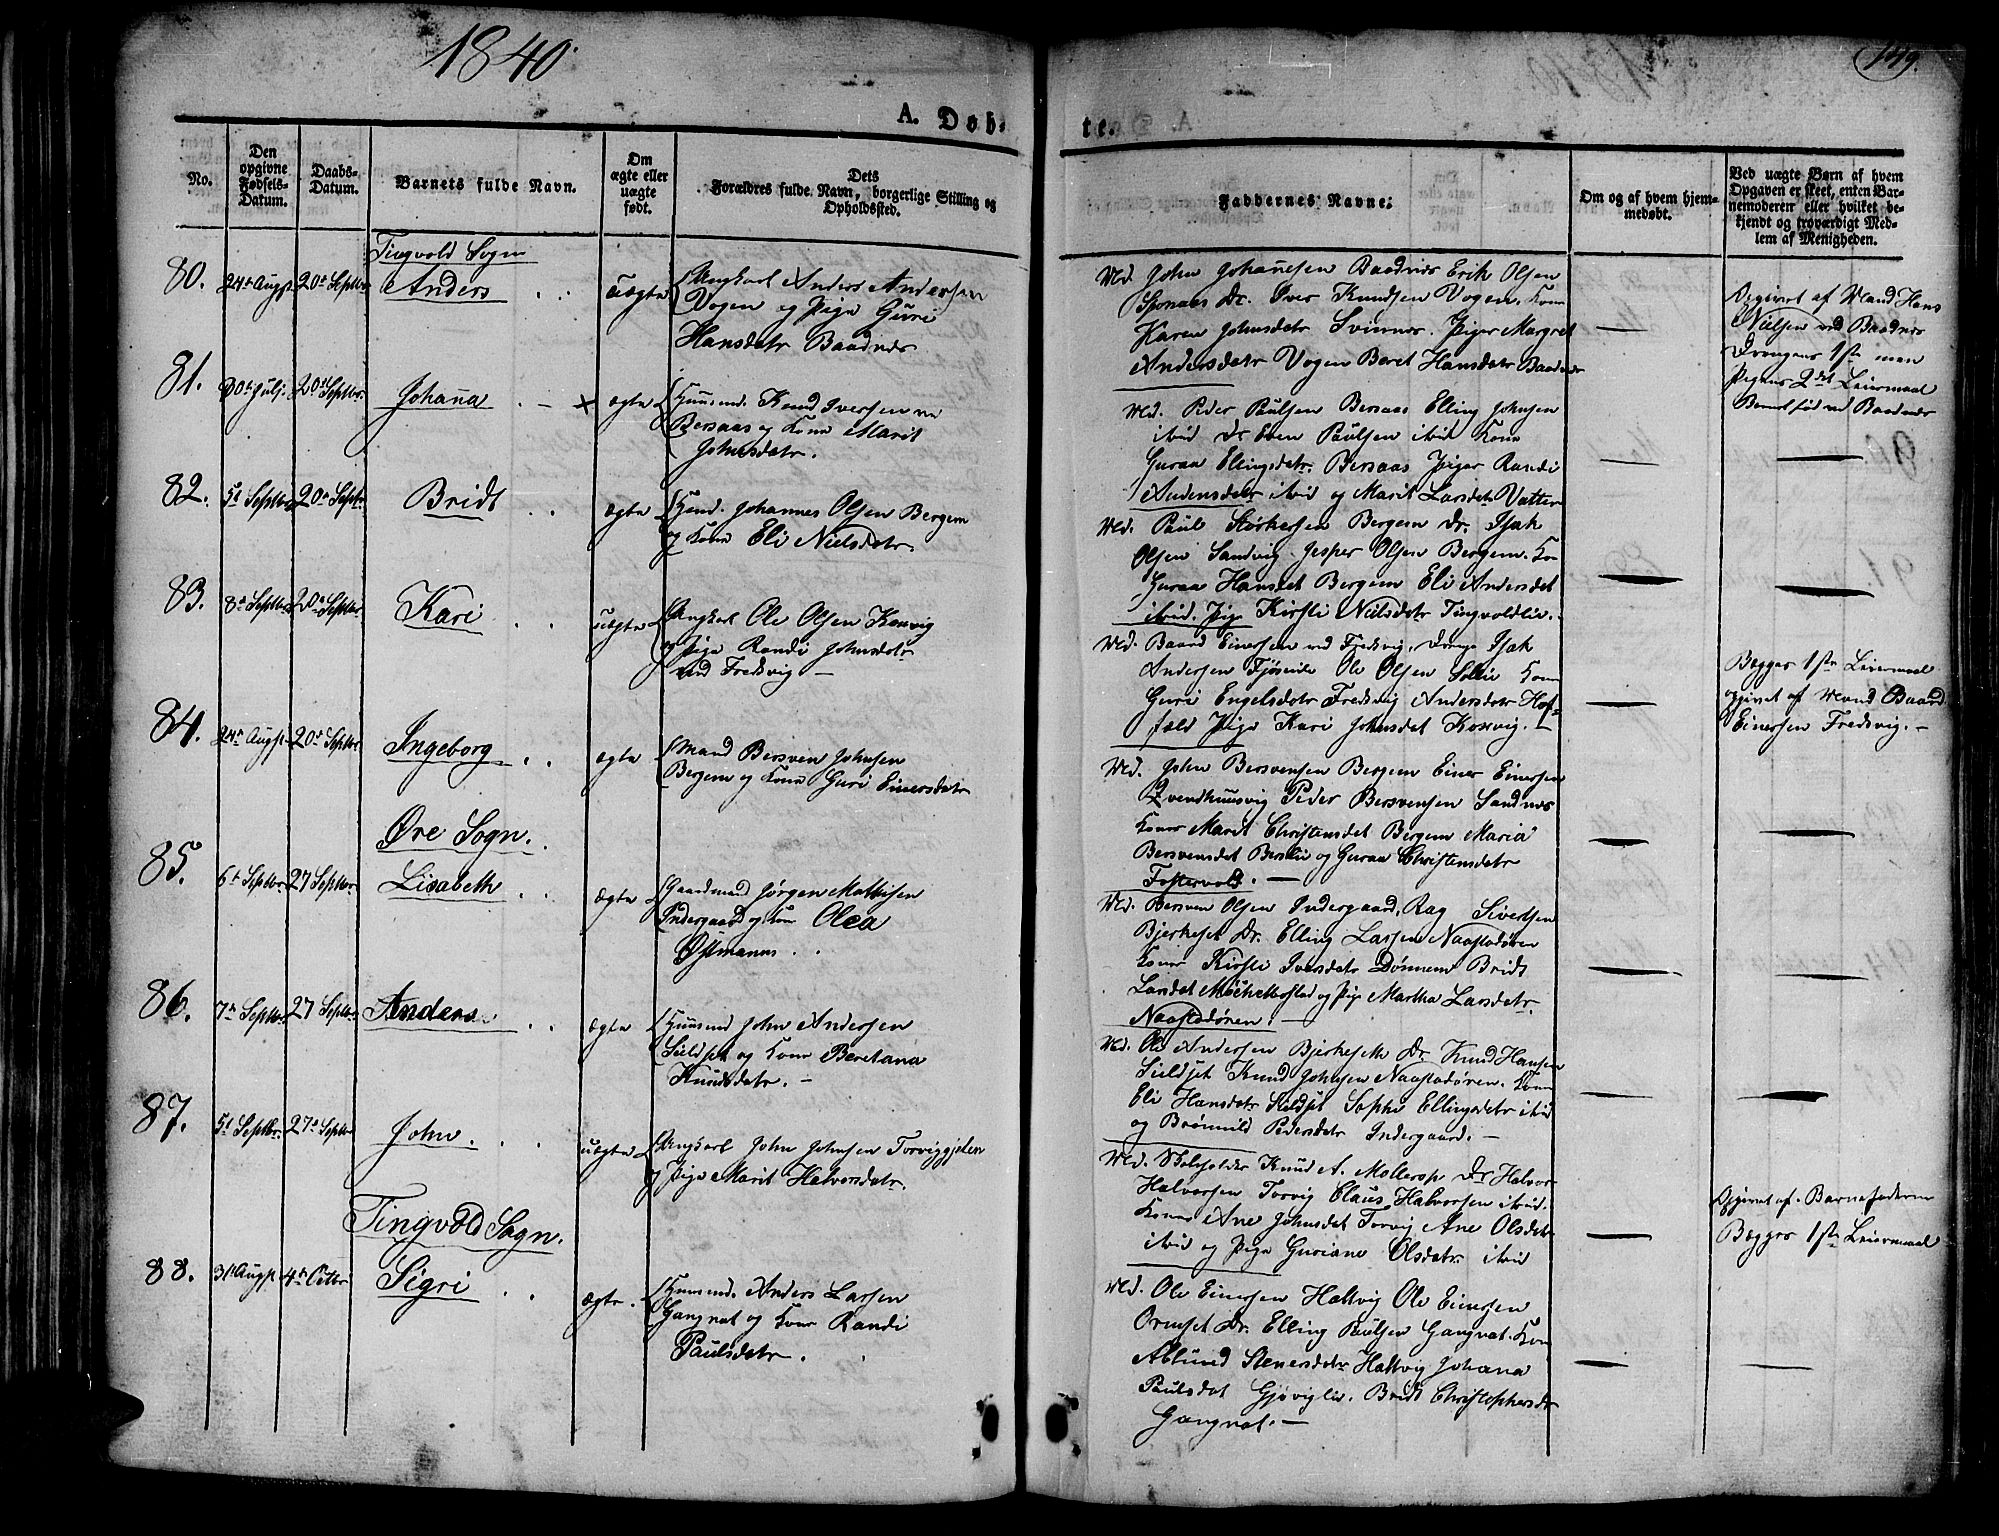 1840.
149.
A. Døb-
te.
No.
Den opgivne Fødsels-Datum.
Daabs-Datum.
Barnets fulde Navn.
Om ægte eller uægte født.
Dets Forældres fulde Navn, borgerlige Stilling og Opholdssted.
Faddernes Navne.
Om og af hvem hjem-medøbt.
Ved uægte Børn af hvem Opgaven er skeet, enten Bar-nemoderen eller hvilket be-kjendt og troværdigt Med-lem af Menigheden.
Tingvold Sogn
80. 24de Augst 20de Septbr Anders
uægte
Ungkarl Anders Andersen
Vogen og Pige Guri
Hansdatr Baadnes
Md. John Johannesen Baadnes Erik Olsen
Dr. Iver Knudsen Vogen. Kone
Karen Johnsdatr Svinnes. Piger Margret
Andersdatr Vogen Beret Hansdatr Baadnes
Opgivet af Mand Hans
Nielsen ved Baadnes
Drengens 1ste men
Pigens 2det Leiermaal
Barnet født ved Baadnes
81. 30te Julj. 20de Septbr. Johana
× ægte
Huusmd. Knud Iversen
Bersaas og Kone Marit
Johnsdatr.
Md. Peder Paulsen Bersaas Elling Johnsen
ibid Dr Even Paulsen ibid Kone
Guraa Ellingsdatr. Bersaas Piger Randi
Andersdatr ibid og Marit Larsdatr Vatten
82. 5te Septbr 20de Septbr. Bridt
ægte
Johannes Olsen Bergem
og Kone Eli Nielsdatr.
Md. Paul Størkersen Bergem Dr. Isak
Olsen Sandvig Jesper Olsen Bergem. Ko
Guraa Hansdat Bergem Eli Andersdat
ibid. Pige Kirsti Nielsdatr Tingvoldlie.
83. 8de Septbr 20de Septbr Kari
uægte
Ungkarl Ole Olsen Korsvig
og Pige Randi Johnsdatr
ved Fredsvig —
Md. Baard Einersen ved Fredsvig. Drenge Isak
Andersen Ole Olsen Sollie Kone
Guri Engelsdatr Fredsvig Andersdatr Hof-
fæld Pige Kari Johnsdat Korsvig. —
Begges 1ste Leiermaal
opgivet af Mand Baard
Einersen Fredsvig. —
84. 24de Augst 20de Septbr. Ingeborg
ægte
Mand Bersven Johnsen
Bergem og Kone Guri Einersdatr
Md. John Bersvensen Bergem Einer Einersen
Peder Bersvensen Sandnes
Koner Marit Christensdat Bergem Maria
Bersvensdat Berslie og Guraa Christensdatr
Fostervold. —
Øre Sogn.
85. 6te Septbr. 27 Septbr. Lisabeth
ægte
Gaardmand Jørgen Mathisen
Indergaard og Kone Olea
Ostmanns.
Md. Bersven Olsen Indergaard, Rag Sivertsen
Bjerkeset Dr. Elling Larsen Naastadøren
Koner Kirsti Iversdatr Dønnem Bridt
Larsdat og Pige Martha Larsdatr.
Naastadøren. —
86. 7de Septbr. 27 Septbr. Anders
ægte
Huusmd John Andersen
og Kone Beretana
Knudsdatr. —
Md. Ole Andersen Bjerkeseth Dr. Knud Hansen
Knud Johnsen Naastadøren. Kone
Eli Hansdatr Sophi Ellingsdatr ibid
og Brønnild Pedersdatr Indergaard. —
87. 5te Septbr. 27de Septbr John.
uægte
Ungkarl John Johnsen Torviggjelen
og Pige Marit Halvorsdatr.
Md. Skoleholder Knud A. Mollerop Dr Halvor
Halvorsen Torvig Claus Halvorsen ibid.
Koner Ane Johnsdat Torvig Ane Olsdatr
ibid og Pige Guriane Olsdatr. ibid
Opgivet af. Barnefaderen
Begges 1ste Leiermaal
Tingvold Sogn.
88. 31te Augst 4de Octbr. Sigri
ægte.
Huusmd. Anders Larsen
Gangnat og Kone Randi
Paulsdatr.
Md. Ole Einersen Haltvig Ole Einersen
Ormset Dr. Elling Paulsen Gangnat. Kone
Ablund Stenersdatr Haltvig Johana
Paulsdat Gjøviglie. Bridt Christophersdr
Gangnat. —